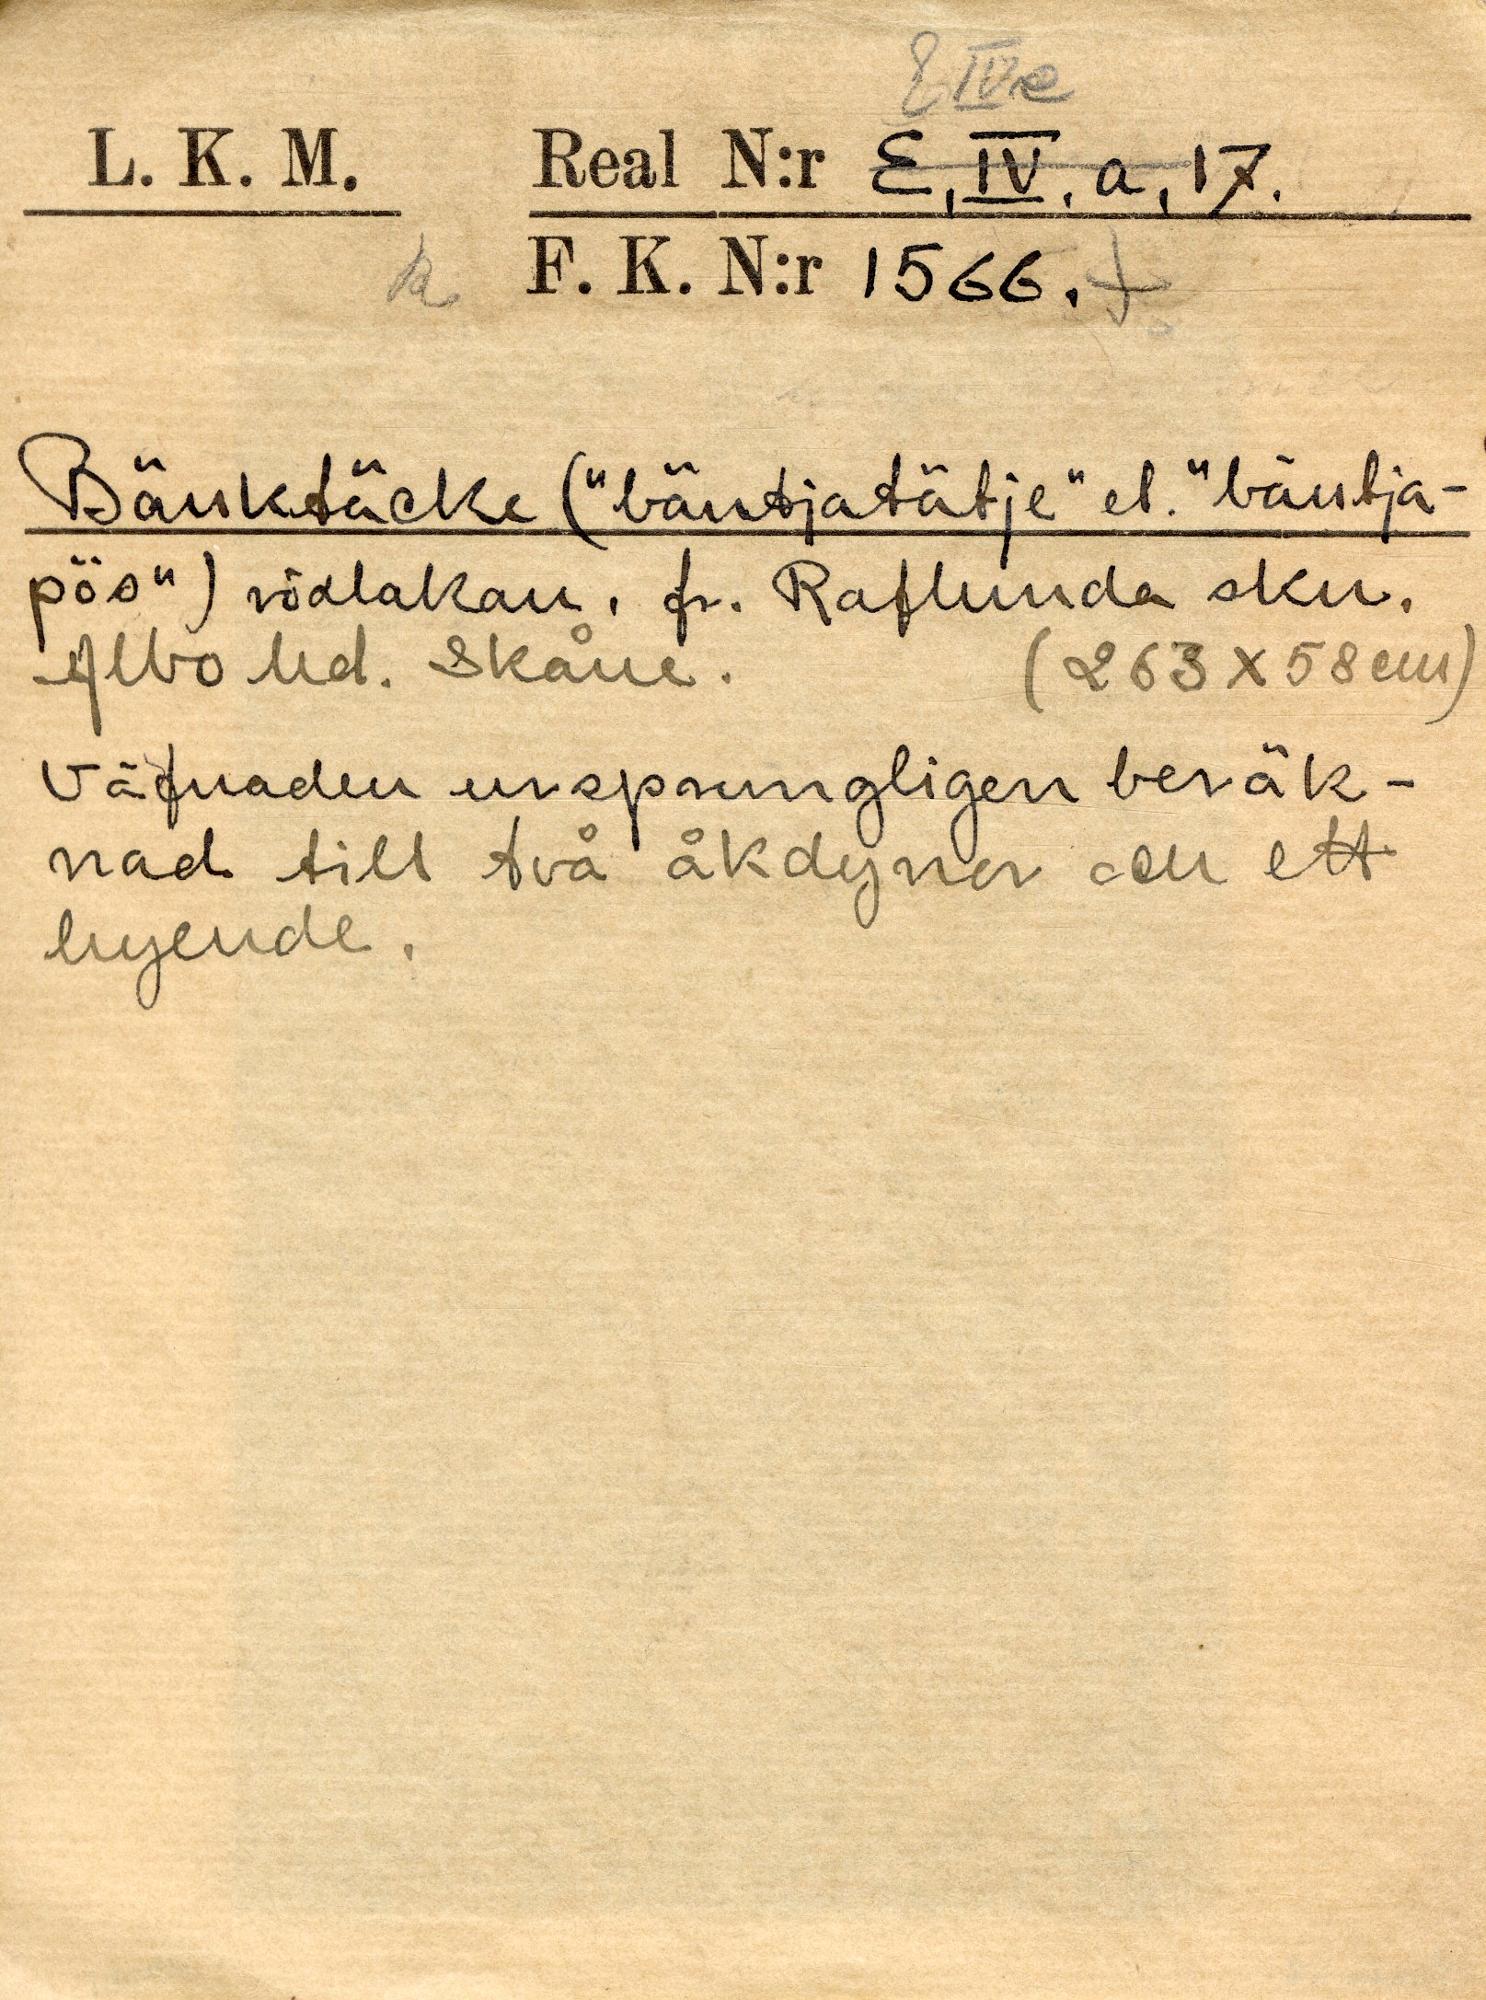 E IV e
L. K. M. Real N:r E, IV, a, 17.
F. K. N:r 1566.
Bänktäcke ("bäntjatätje" el. "bäntja-
pös") rödlakan, fr. Raflunda skn.
Albo hd. Skåne. (263 x 58 cm)
Väfnaden ursprungligen beräk-
nad till två åkdynor och ett
hyende.